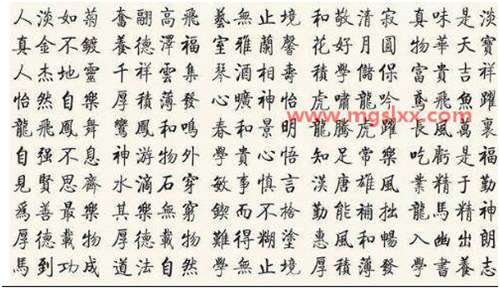 人淡如菊 奮翮高飛 藝無止境 和敬清寂 真味是淡
真金不鍍 養德澤福 室雅蘭馨 花好月圓 物華天寶
人杰地靈 千祥雲集 琴 壽 學儲 富貴吉祥
怡然自樂 厚積薄發 心曠神怡 虎嘯龍吟 鳶飛魚躍
www.mgslxx.com
龍飛鳳舞 鸞鳳和鳴 春和景明 龍騰虎躍 長風萬裏
自强不息 神游物外 學貴心悟 知足常樂 吃虧是福
見賢思齊 水滴石穿 敏事慎言 漢唐雄風 業精於勤
爲善最樂 其樂無窮 鍥而不捨 勤能補拙 龍馬精神
厚德載物 厚德載物 難得糊塗 惠風和暢 入幽出朗
馬到功成 道法自然 學無止境 厚積薄發 學書養志